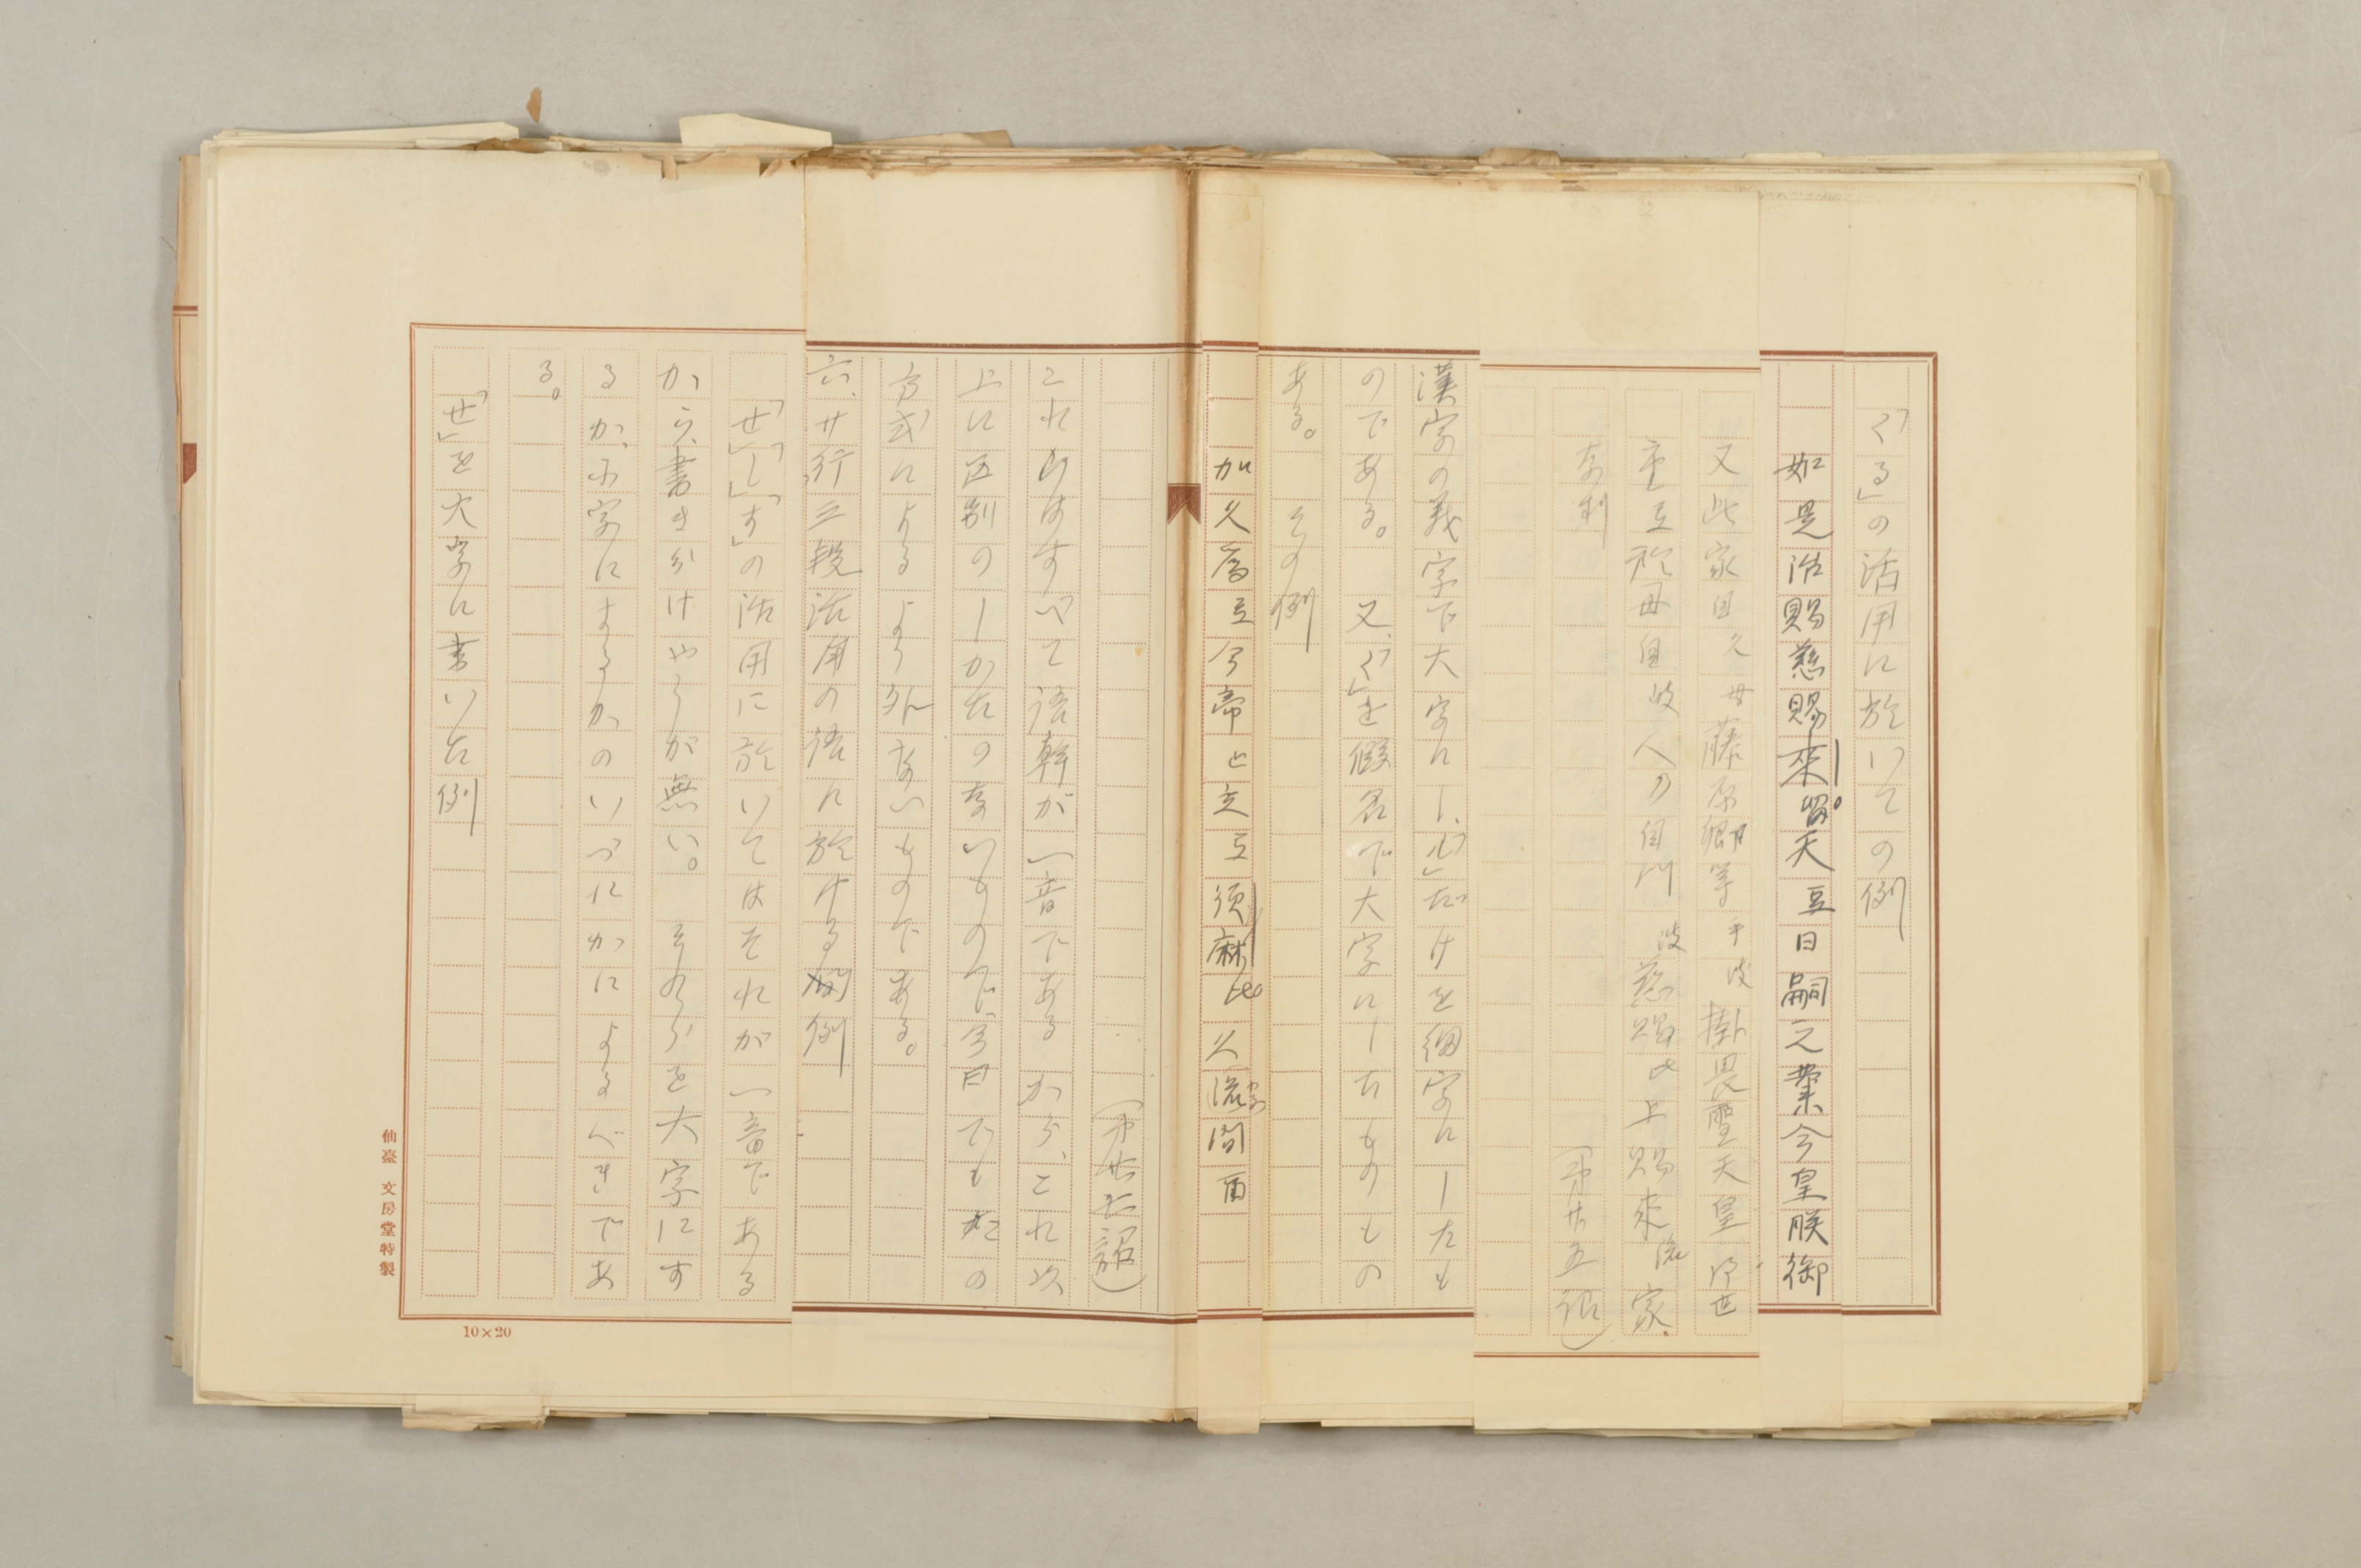 「くる」の活用に於いての例
如是治賜慈賜来留天豆日嗣之業今皇朕御
又此家自久母藤原卿等乎波掛畏聖天皇御世
重弖於母自岐人乃自門波慈賜比上賜来流家
奈利
(第廿五詔)
漢字の義字で大字にし、「ル」だけを細字にしたも
のである。又、「く」を假名で大字にしたものもの
ある。その例
加久為弖今帝止立弖須麻比久流間爾
(第廿七詔)
これはすべて語幹が一音であるから、これ以
上に区別のしかたのないもので、今日でもこの
方式によるより外ないものである。
六、サ行三段活用の語に於ける例
「せ」「し」「す」の活用に於いてはそれが一音である
から、書き分けやうが無い。それらを大字にす
るか、小字にするかのいづれかによるべきであ
る。
「せ」を大字に書いた例
仙臺 文房堂特製
10×20